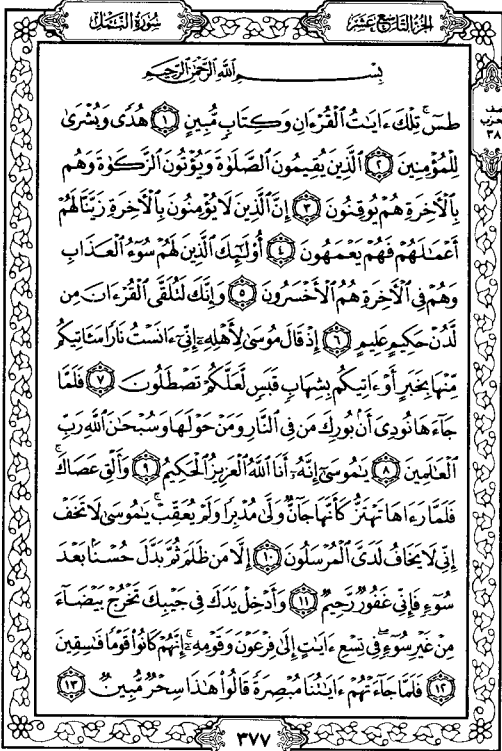 سُورَةُ النَّمْلِ
الجُزْءُ التَّاسِعَ عَشَرَ
بِسْمِ اللَّهِ الرَّحْمَٰنِ الرَّحِيمِ
طسٓ ۚ تِلْكَ ءَايَٰتُ الْقُرْءَانِ وَكِتَابٍ مُّبِينٍ ١ هُدًى وَبُشْرَىٰ
لِلْمُؤْمِنِينَ ٢ الَّذِينَ يُقِيمُونَ الصَّلَوٰةَ وَيُؤْتُونَ الزَّكَوٰةَ وَهُم
بِالْأَخِرَةِ هُمْ يُوقِنُونَ ٣ إِنَّ الَّذِينَ لَا يُؤْمِنُونَ بِالْأَخِرَةِ زَيَّنَّا لَهُمْ
أَعْمَٰلَهُمْ فَهُمْ يَعْمَهُونَ ٤ أُوْلَٰٓئِكَ الَّذِينَ لَهُمْ سُوٓءُ الْعَذَابِ
وَهُمْ فِي الْأَخِرَةِ هُمُ الْأَخْسَرُونَ ٥ وَإِنَّكَ لَتُلَقَّى الْقُرْءَانَ مِن
لَّدُنْ حَكِيمٍ عَلِيمٍ ٦ إِذْ قَالَ مُوسَىٰ لِأَهْلِهِۦٓ إِنِّىٓ ءَانَسْتُ نَارًا سَـَٔاتِيكُم
مِّنْهَا بِخَبَرٍ أَوْ ءَاتِيكُم بِشِهَابٍ قَبَسٍ لَّعَلَّكُمْ تَصْطَلُونَ ٧ فَلَمَّا
جَآءَهَا نُودِىَ أَنۢ بُورِكَ مَن فِي النَّارِ وَمَنْ حَوْلَهَا وَسُبْحَٰنَ اللَّهِ رَبِّ
الْعَٰلَمِينَ ٨ يَٰمُوسَىٰٓ إِنَّهُۥٓ أَنَا اللَّهُ الْعَزِيزُ الْحَكِيمُ ٩ وَأَلْقِ عَصَاكَ ۚ
فَلَمَّا رَءَاهَا تَهْتَزُّ كَأَنَّهَا جَآنٌّ وَلَّىٰ مُدْبِرًا وَلَمْ يُعَقِّبْ ۚ يَٰمُوسَىٰ لَا تَخَفْ
إِنِّى لَا يَخَافُ لَدَىَّ الْمُرْسَلُونَ ١٠ إِلَّا مَن ظَلَمَ ثُمَّ بَدَّلَ حُسْنًۢا بَعْدَ
سُوٓءٍ فَإِنِّى غَفُورٌ رَّحِيمٌ ١١ وَأَدْخِلْ يَدَكَ فِى جَيْبِكَ تَخْرُجْ بَيْضَآءَ
مِنْ غَيْرِ سُوٓءٍ ۖ فِى تِسْعِ ءَايَٰتٍ إِلَىٰ فِرْعَوْنَ وَقَوْمِهِۦٓ ۚ إِنَّهُمْ كَانُوا۟ قَوْمًا فَٰسِقِينَ
١٢ فَلَمَّا جَآءَتْهُمْ ءَايَٰتُنَا مُبْصِرَةً قَالُوا۟ هَٰذَا سِحْرٌ مُّبِينٌ ١٣
٣٧٧
نصف
حزب
٣٨